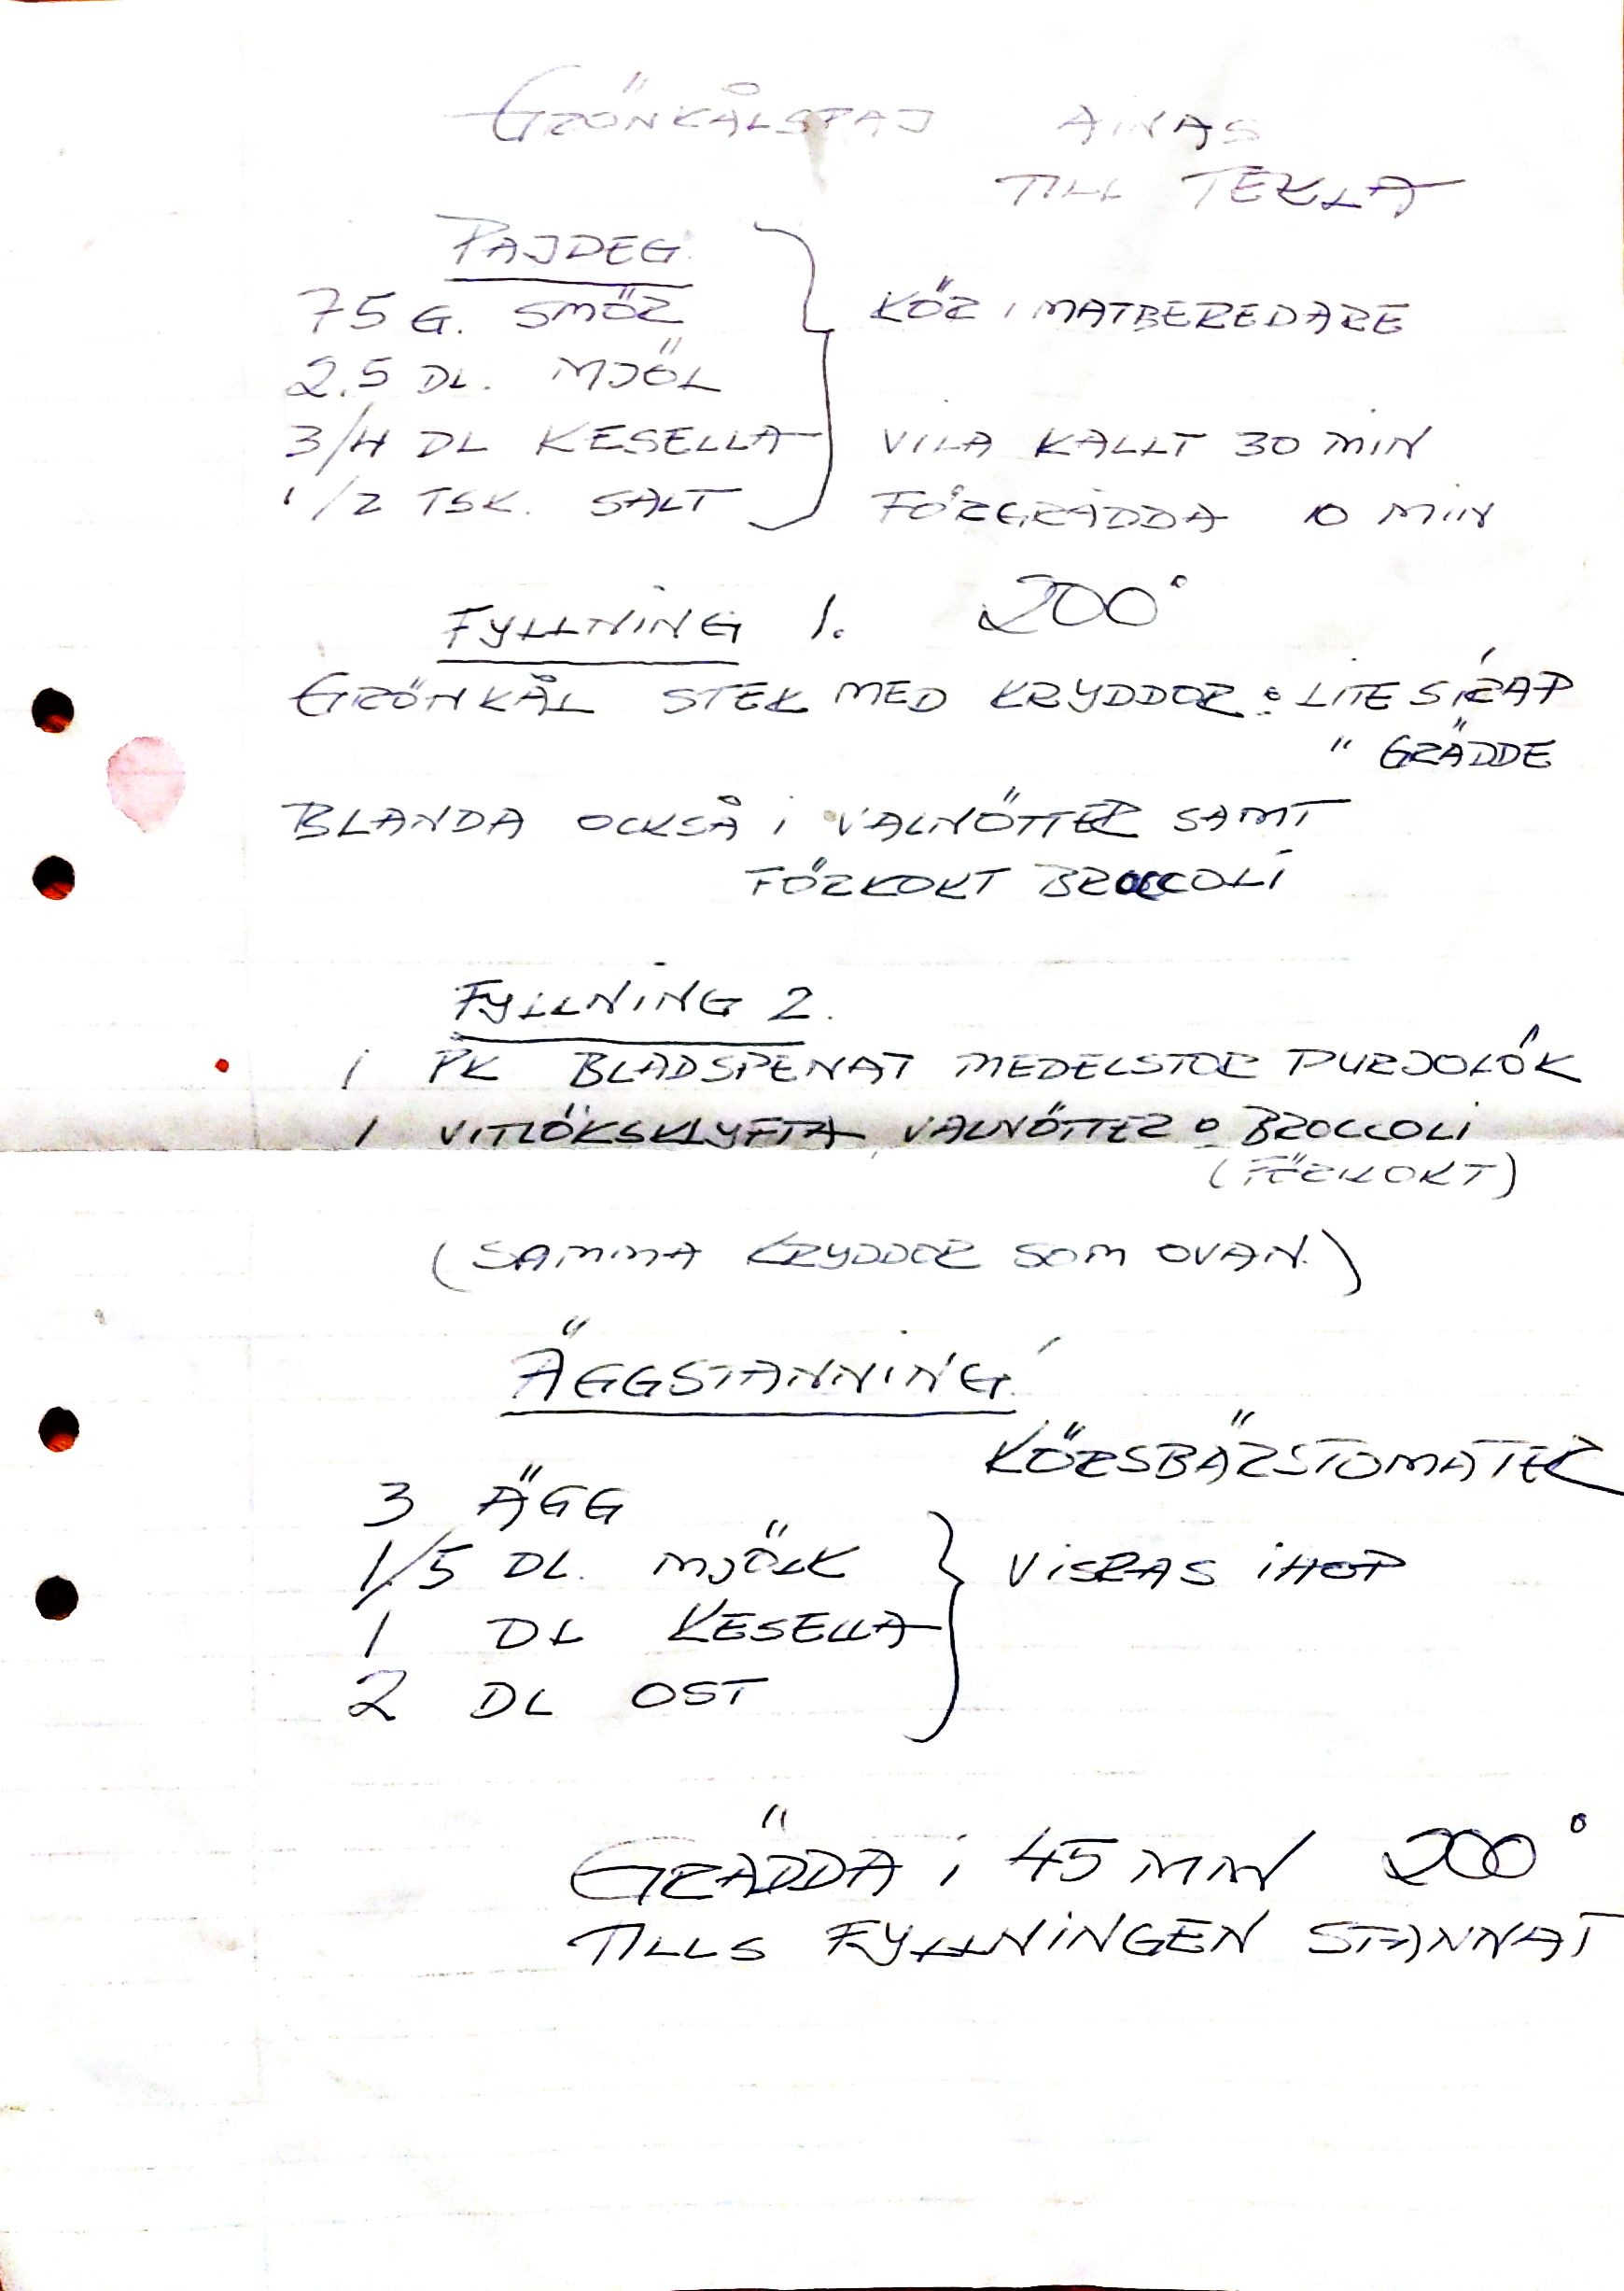 GRÖNKÅLSPAJ AINAS
TILL TEKLA
PAJDEG.
75 G. SMÖR KÖR I MATBEREDARE
2.5 DL. MJÖL
3/4 DL KESELLA VILA KALLT 30 MIN
1/2 TSK. SALT FÖRGRÄDDA 10 MIN
FYLLNING 1. 200°
GRÖNKÅL STEK MED KRYDDOR o LITE SIRAP
" GRÄDDE
BLANDA OCKSÅ I VALNÖTTER SAMT
FÖRKOKT BROCCOLI
FYLLNING 2.
1 PK BLADSPENAT MEDELSTOR PURJOLÖK
1 VITLÖKSKLYFTA, VALNÖTTER o BROCCOLI
(FÖRKOKT)
(SAMMA KRYDDOR SOM OVAN.)
ÄGGSTANNING
KÖRSBÄRSTOMATER
3 ÄGG
1/5 DL. MJÖLK VISPAS IHOP
1 DL KESELLA
2 DL OST
GRÄDDA I 45 MIN 200°
TILLS FYLLNINGEN STANNAT